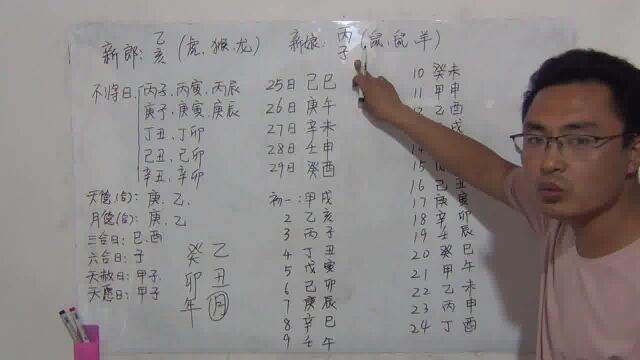 新郎: 乙亥 (虎、猴、龙)
新娘: 丙子 (鼠、鼠、羊)
不将日、丙子、丙寅、丙辰
庚子、庚寅、庚辰
丁丑、丁卯
己丑、己卯
辛丑、辛卯
天德(合): 庚、乙
月德(合): 庚、乙
三合日: 巳、酉
六合日: 子
天赦日: 甲子
天愿日: 甲子
癸卯年
乙丑月
25日 己巳
26日 庚午
27日 辛未
28日 壬申
29日 癸酉
初一: 甲戌
2 乙亥
3 丙子
4 丁丑
5 戊寅
6 己卯
7 庚辰
8 辛巳
9 壬午
10 癸未
11 甲申
乙酉
戌
15
16 己丑
17 庚寅
18 辛卯
19 壬辰
20 癸巳
21 甲午
22 乙未
23 丙申
24 丁酉